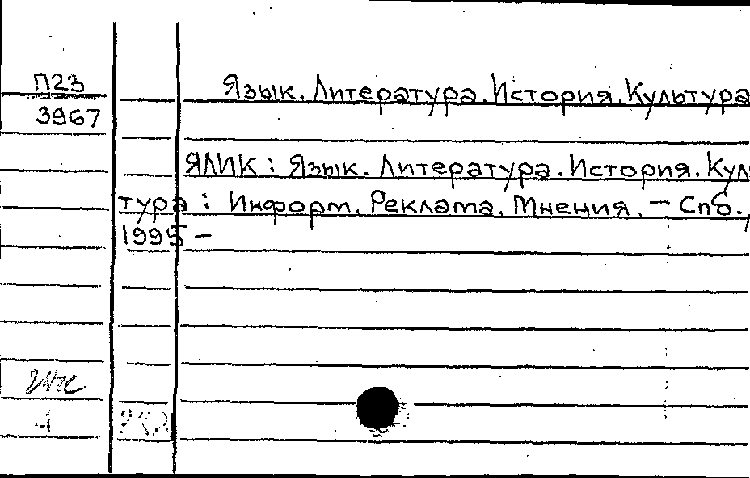 П23
3967
Язык. Литература. История. Культура
ЯЛИК : Язык. Литература. История. Кул
тура : Информ. Реклама. Мнения. — Спб.,
1995 –